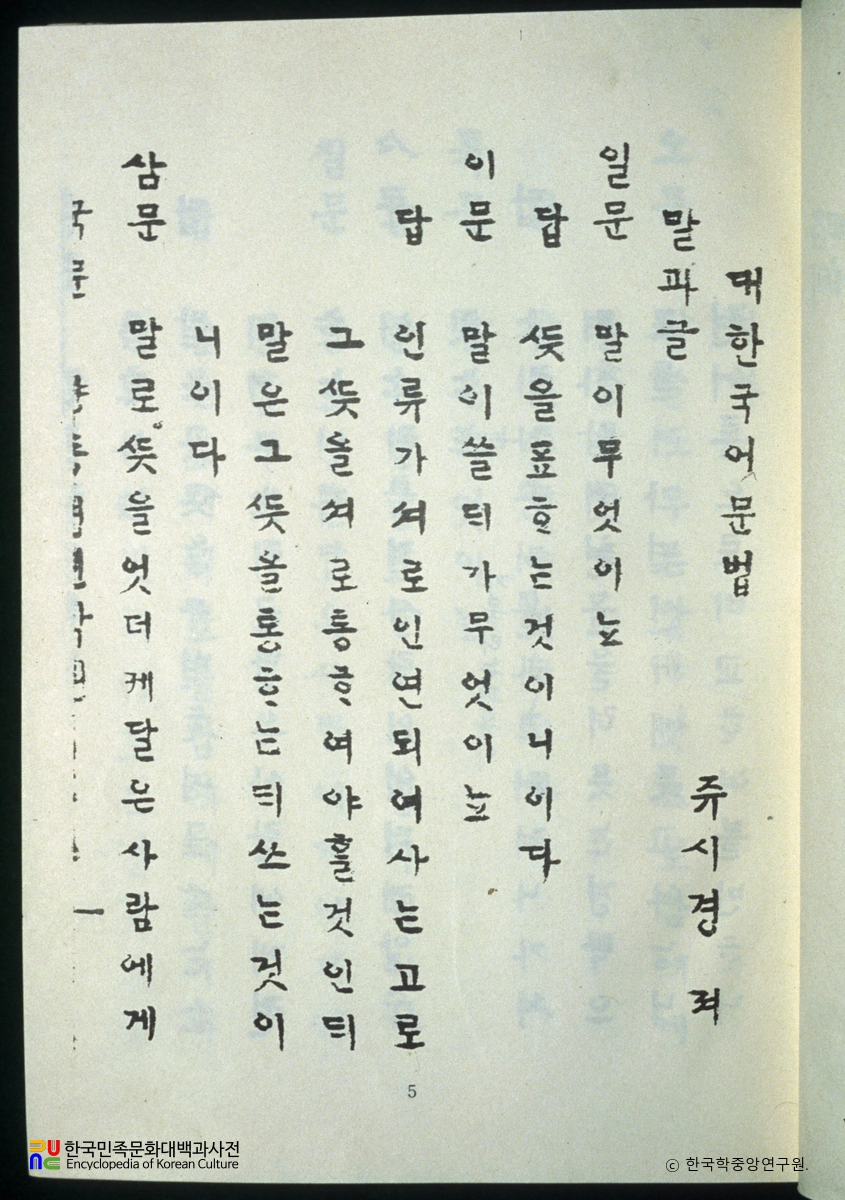 대한국어문법
쥬시경 져
말과글
일문 말이무엇이뇨
답 ᄯᅳᆺ을표ᄒᆞ는것이니이다
이문 말이쓸ᄃᆡ가무엇이뇨
답 인류가셔로인연되여사는고로
그ᄯᅳᆺ을셔로통ᄒᆞ여야ᄒᆞᆯ것인ᄃᆡ
말은그ᄯᅳᆺ을통ᄒᆞ는ᄃᆡ쓰는것이
니이다
삼문 말로ᄯᅳᆺ을엇더케달은사람에게
국문
5
한국민족문화대백과사전
Encyclopedia of Korean Culture
ⓒ 한국학중앙연구원.